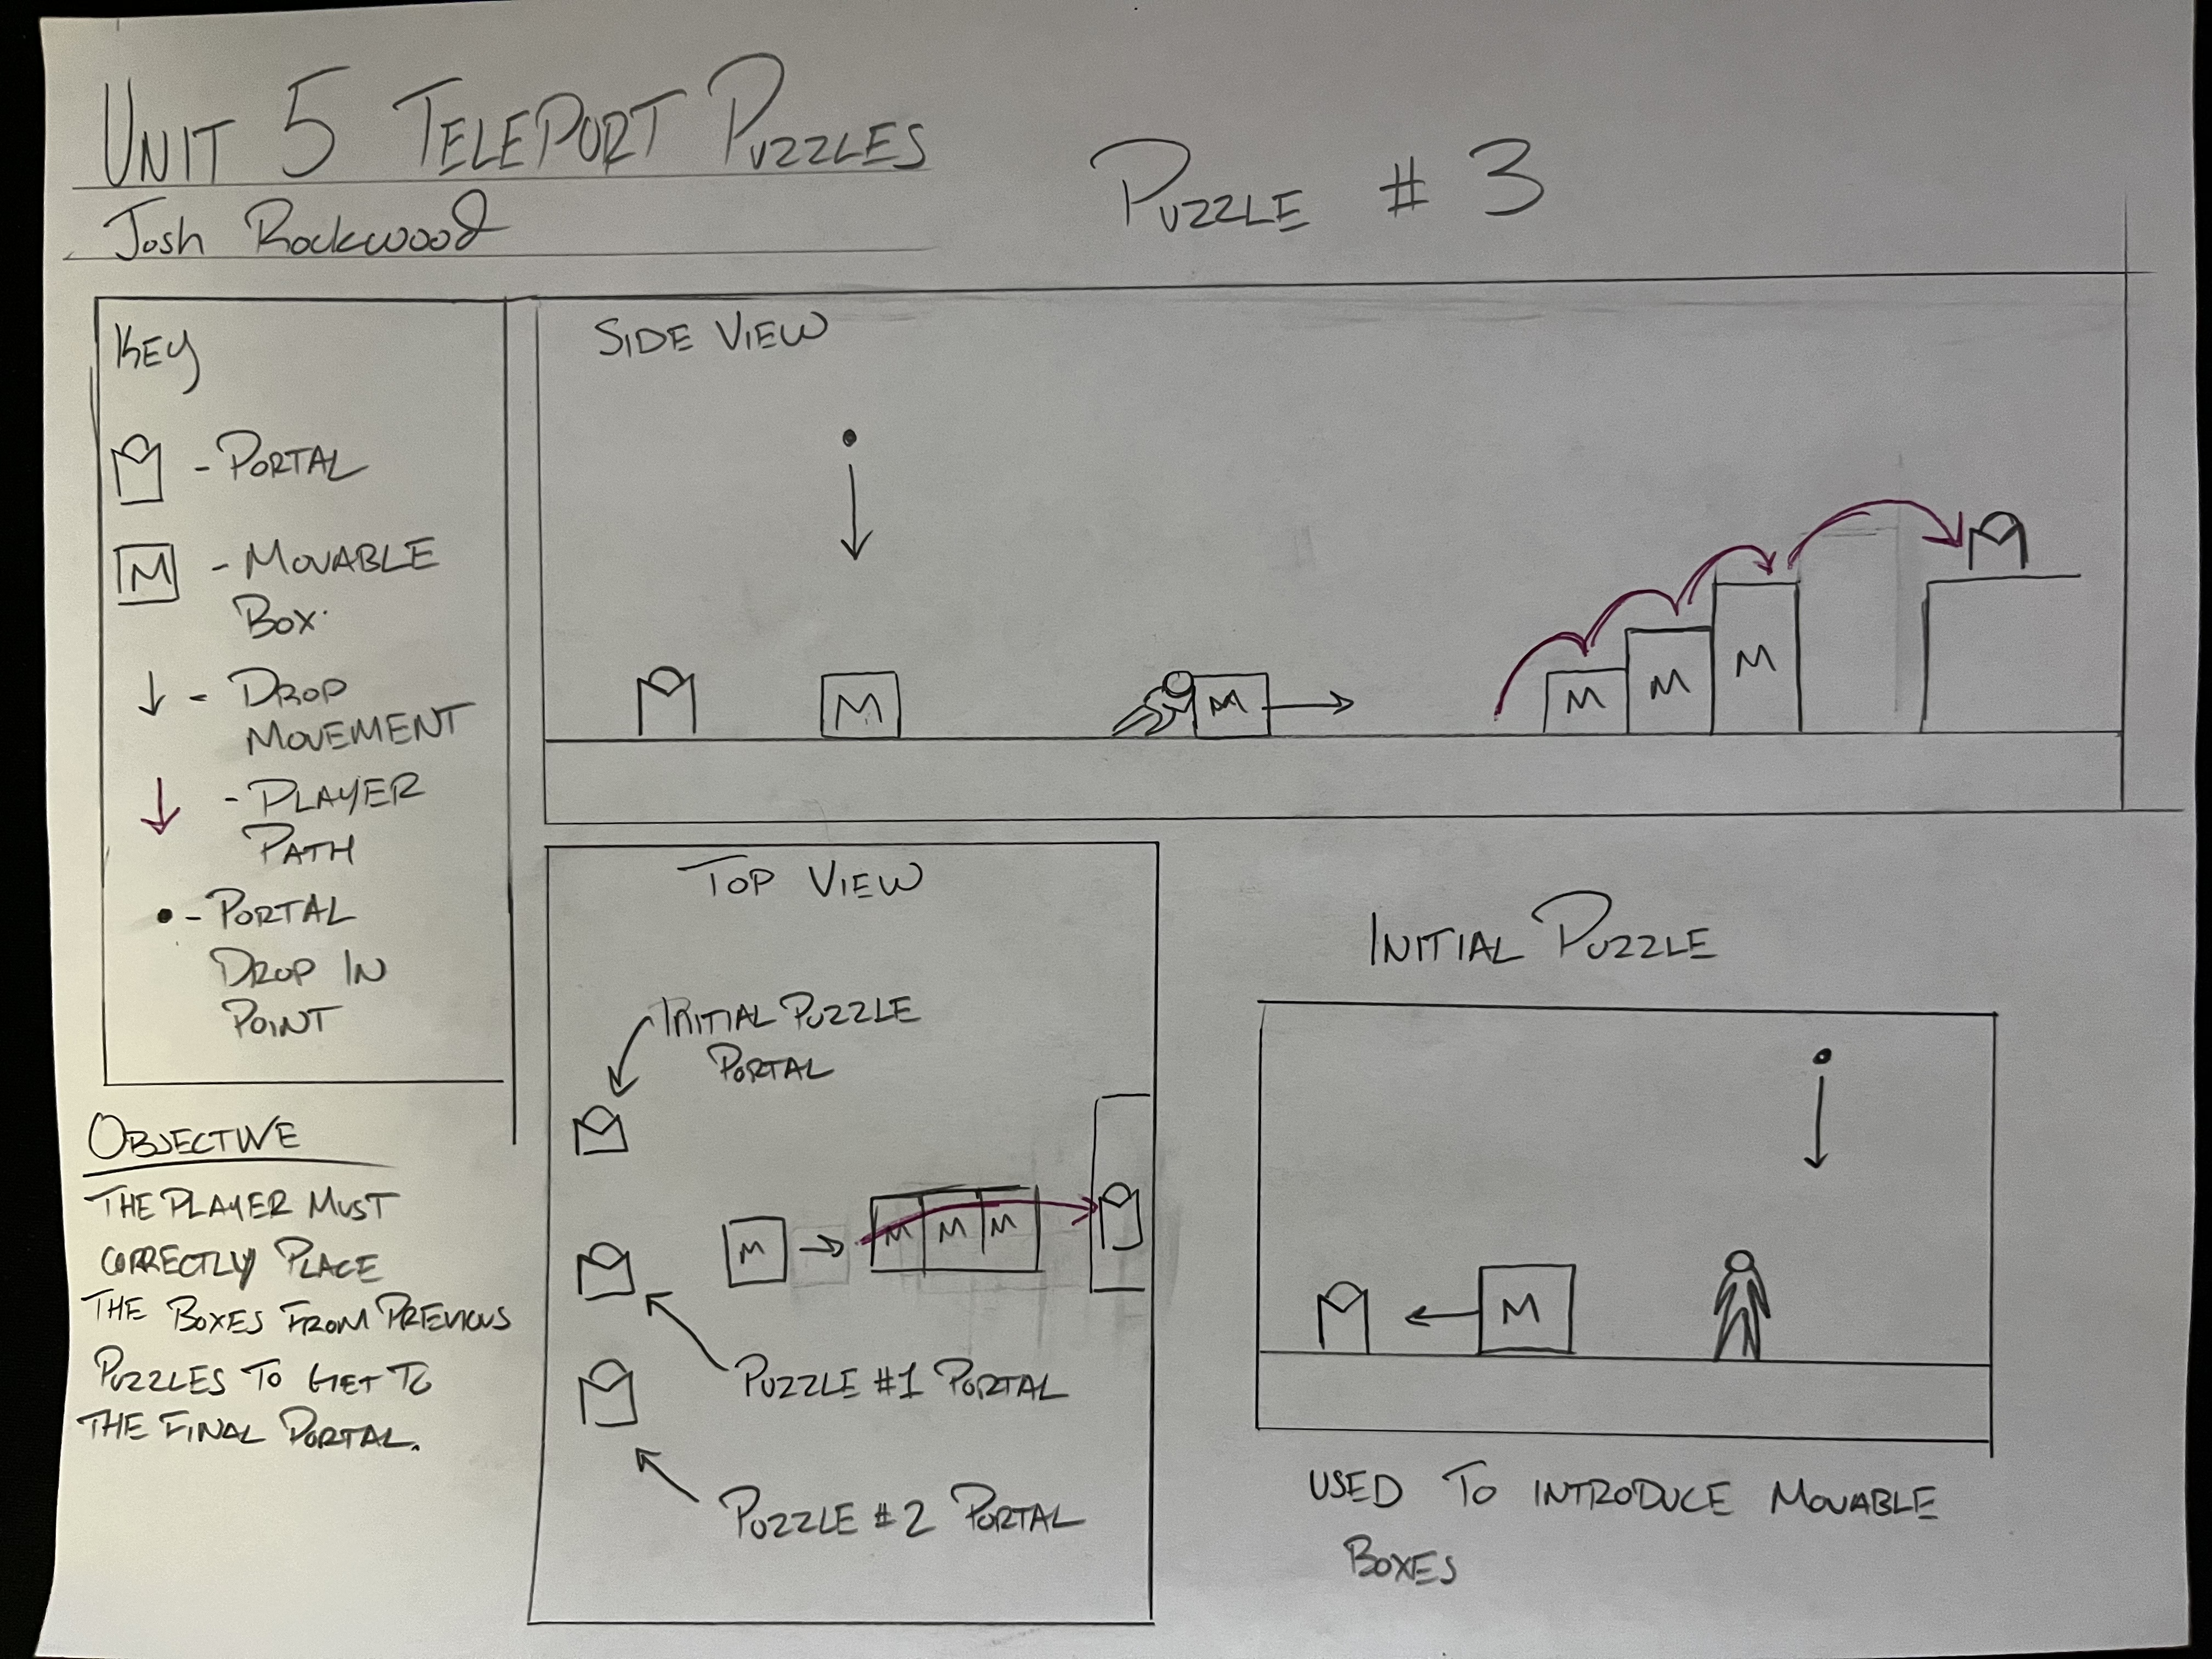 UNIT 5 TELEPORT PUZZLES
Josh Rockwood
PUZZLE # 3
KEY
- PORTAL
M - MOVABLE
BOX.
- DROP
MOVEMENT
- PLAYER
PATH
- PORTAL
DROP IN
POINT
OBJECTIVE
THE PLAYER MUST
CORRECTLY PLACE
THE BOXES FROM PREVIOUS
PUZZLES TO GET TO
THE FINAL PORTAL.
SIDE VIEW
M M M M M
TOP VIEW
INITIAL PUZZLE
PORTAL
M M M M
PUZZLE #1 PORTAL
PUZZLE #2 PORTAL
INITIAL PUZZLE
M
USED TO INTRODUCE MOVABLE
BOXES